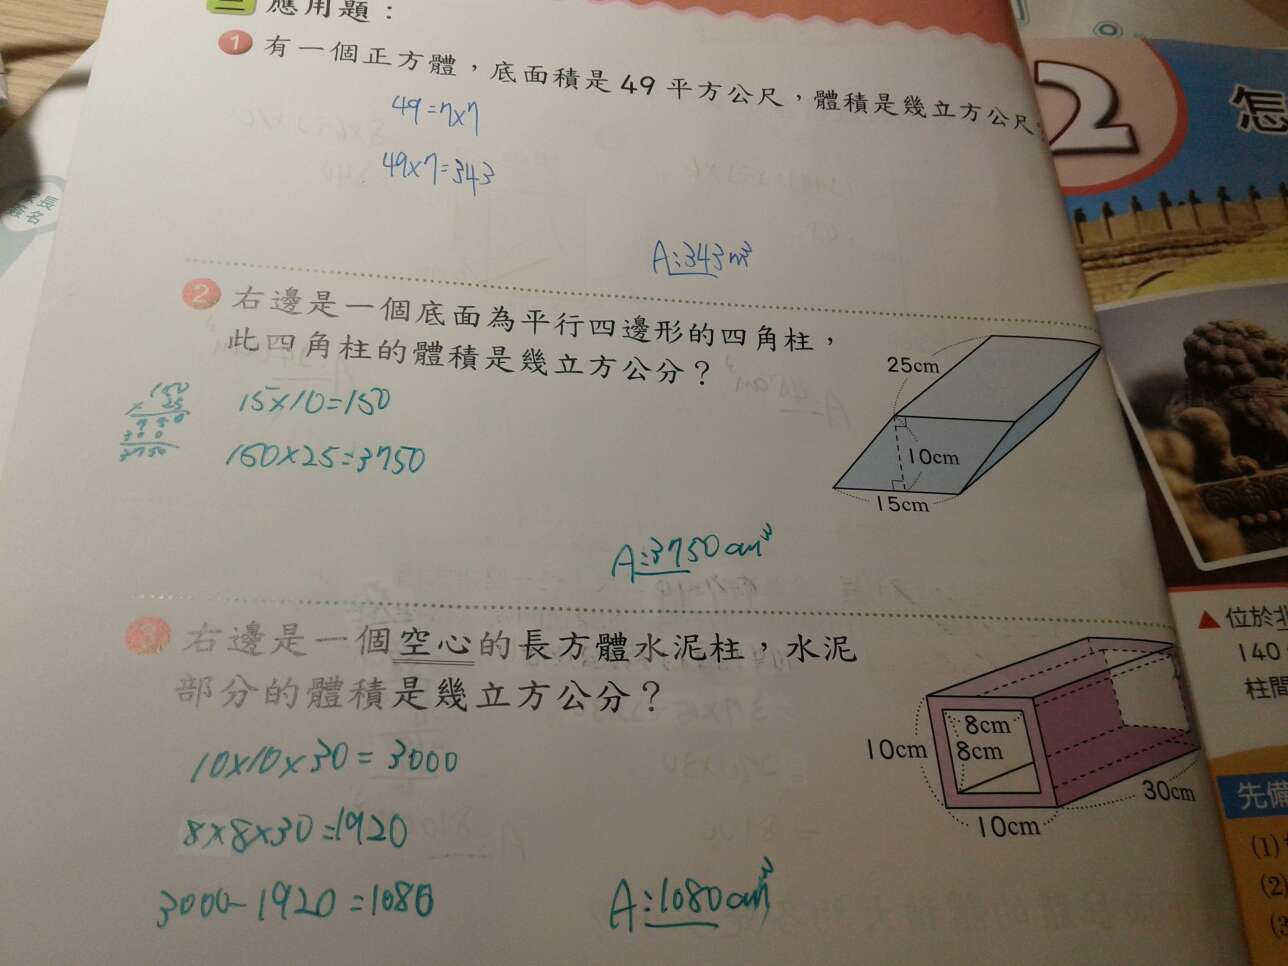 三 應用題：
1 有一個正方體，底面積是49平方公尺，體積是幾立方公尺
49=7×7
49×7=343
A:343m³
2 右邊是一個底面為平行四邊形的四角柱，
此四角柱的體積是幾立方公分？
15×10=150
150×25=3750
150
×25
750
300
3750
25cm
10cm
15cm
A:3750cm³
3 右邊是一個空心的長方體水泥柱，水泥
部分的體積是幾立方公分？
10×10×30=3000
8×8×30=1920
3000-1920=1080
A:1080cm³
8cm
8cm
10cm
10cm
30cm
2 怎
▲位於北
140
柱間
先備
(1)
(2)
(3)
家長
簽名